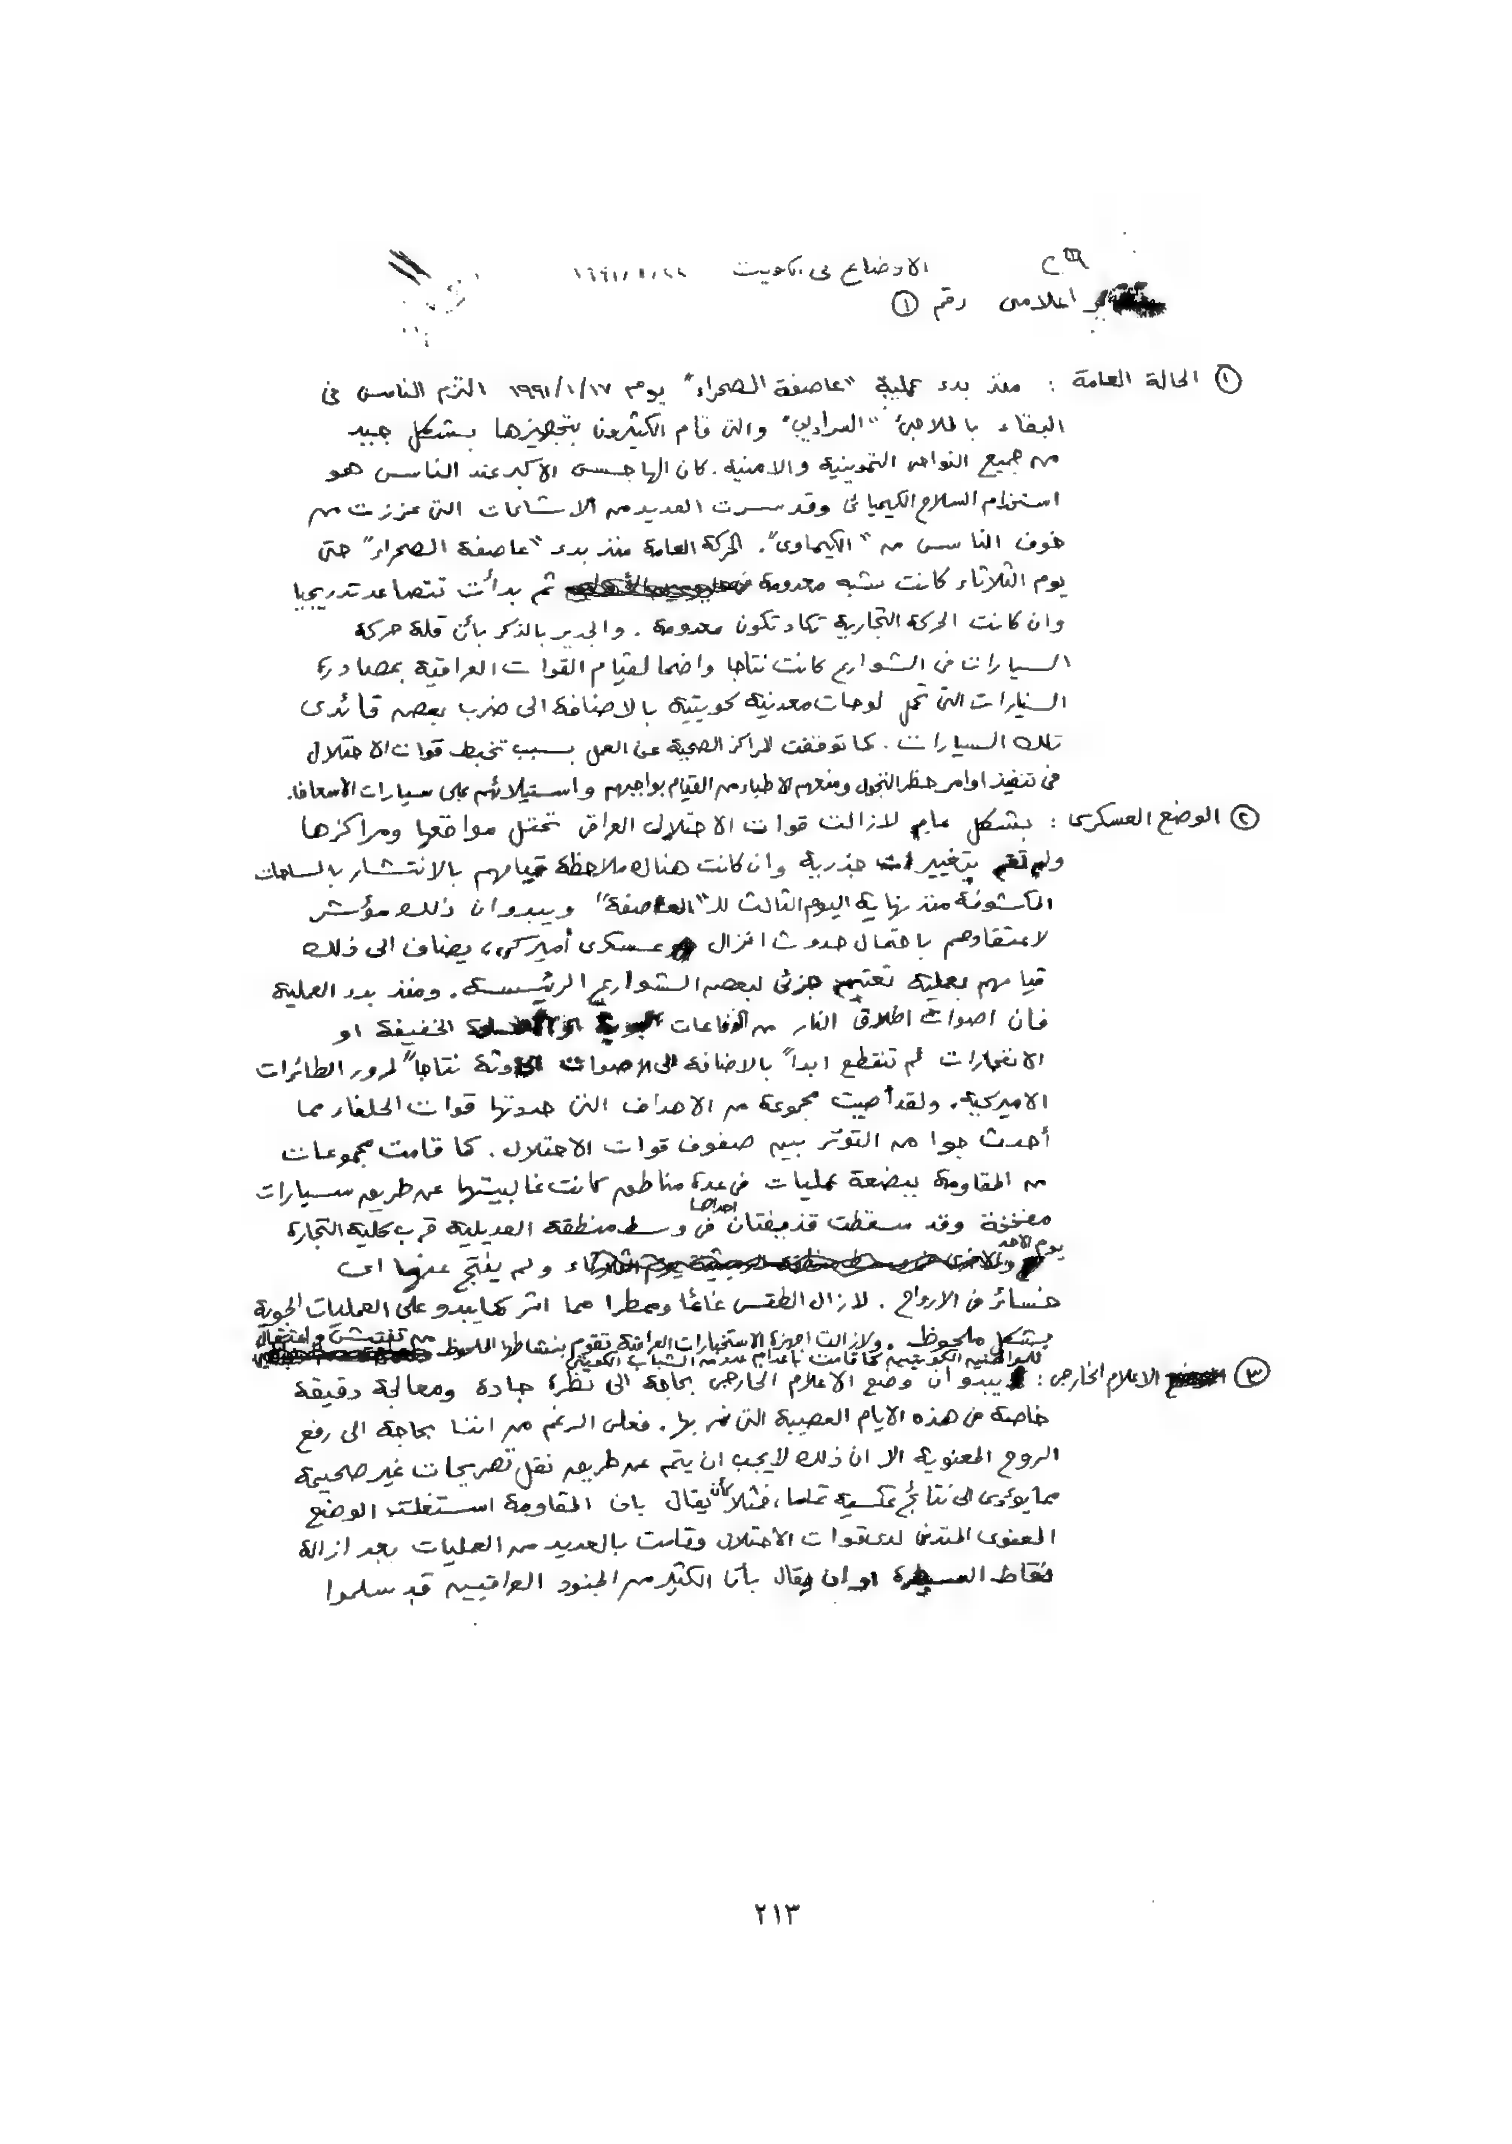 الاوضاع في الكويت
اعلامي رقم ١
١ الحالة العامة : منذ بدء عملية "عاصفة الصحراء" يوم ١٩٩١/١/١٧ التزم الناس في
البقاء بالملاجئ "السراديب" والتي قام الكثيرون بتجهيزها بشكل جيد
من جميع النواحي التموينية والامنية . كان الهاجس الاكبر عند الناس هو
استخدام السلاح الكيميائي وقد سرت العديد من الاشاعات التي عززت من
خوف الناس من "الكيماوي". الحركة العامة منذ بدء "عاصفة الصحراء" حتى
يوم الثلاثاء كانت شبه معدومة ثم بدأت تتصاعد تدريجيا
وان كانت الحركة التجارية تكاد تكون معدومة . والجدير بالذكر بأن قلة حركة
السيارات في الشوارع كانت نتاجا واضحا لقيام القوات العراقية بمصادرة
السيارات التي تحمل لوحات معدنية كويتية بالاضافة الى ضرب بعض قائدي
تلك السيارات . كما توقفت المراكز الصحية عن العمل بسبب تخبط قوات الاحتلال
في تنفيذ اوامر حظر التجول ومنعهم الاطباء من القيام بواجبهم واستيلائهم على سيارات الاسعاف .
٢ الوضع العسكري : بشكل عام لازالت قوات الاحتلال العراقي تحتل مواقعها ومراكزها
ولم تقم بتغييرات جذرية وان كانت هناك ملاحظة قيامهم بالانتشار بالساحات
المكشوفة منذ نهاية اليوم الثالث للـ "العاصفة" ويبدو ان ذلك مؤشر
لاعتقادهم باحتمال حدوث انزال عسكري أميركي، يضاف الى ذلك
قيامهم بعملية تعتيم جزئي لبعض الشوارع الرئيسية . ومنذ بدء العملية
فان اصوات اطلاق النار من الدفاعات الخفيفة او
الانفجارات لم تنقطع ابداً بالاضافة الى الاصوات نتاجاً لمرور الطائرات
الاميركية . ولقد أصيبت مجموعة من الاهداف التي حددتها قوات الحلفاء مما
أحدث جوا من التوتر بين صفوف قوات الاحتلال . كما قامت مجموعات
من المقاومة ببضعة عمليات في عدة مناطق كانت غالبيتها عن طريق سيارات
مفخخة وقد سقطت قذيفتان احداهما في وسط منطقة العديلية قرب كلية التجارة
يوم الاحد ولم ينتج عنها اي
خسائر في الارواح . لازال الطقس غائما وممطرا مما اثر كما يبدو على العمليات الجوية
بشكل ملحوظ . ولازالت اجهزة الاستخبارات العراقية تقوم بنشاطها الملحوظ من تفتيش واعتقال
للمواطنين الكويتيين كما قامت باعدام عدد من الشباب الكويتي
٣ الاعلام الخارجي : يبدو ان وضع الاعلام الخارجي بحاجة الى نظرة جادة ومعالجة دقيقة
خاصة في هذه الايام العصيبة التي نمر بها . فعلى الرغم من اننا بحاجة الى رفع
الروح المعنوية الا ان ذلك لا يجب ان يتم عن طريق نقل تصريحات غير صحيحة
مما يؤدي الى نتائج عكسية تماما، فمثلا كأن يقال بان المقاومة استغلت الوضع
المعنوي المتدني لدى قوات الاحتلال وقامت بالعديد من العمليات بعد ازالة
نقاط السيطرة او ان يقال بأن الكثير من الجنود العراقيين قد سلموا
٢١٣